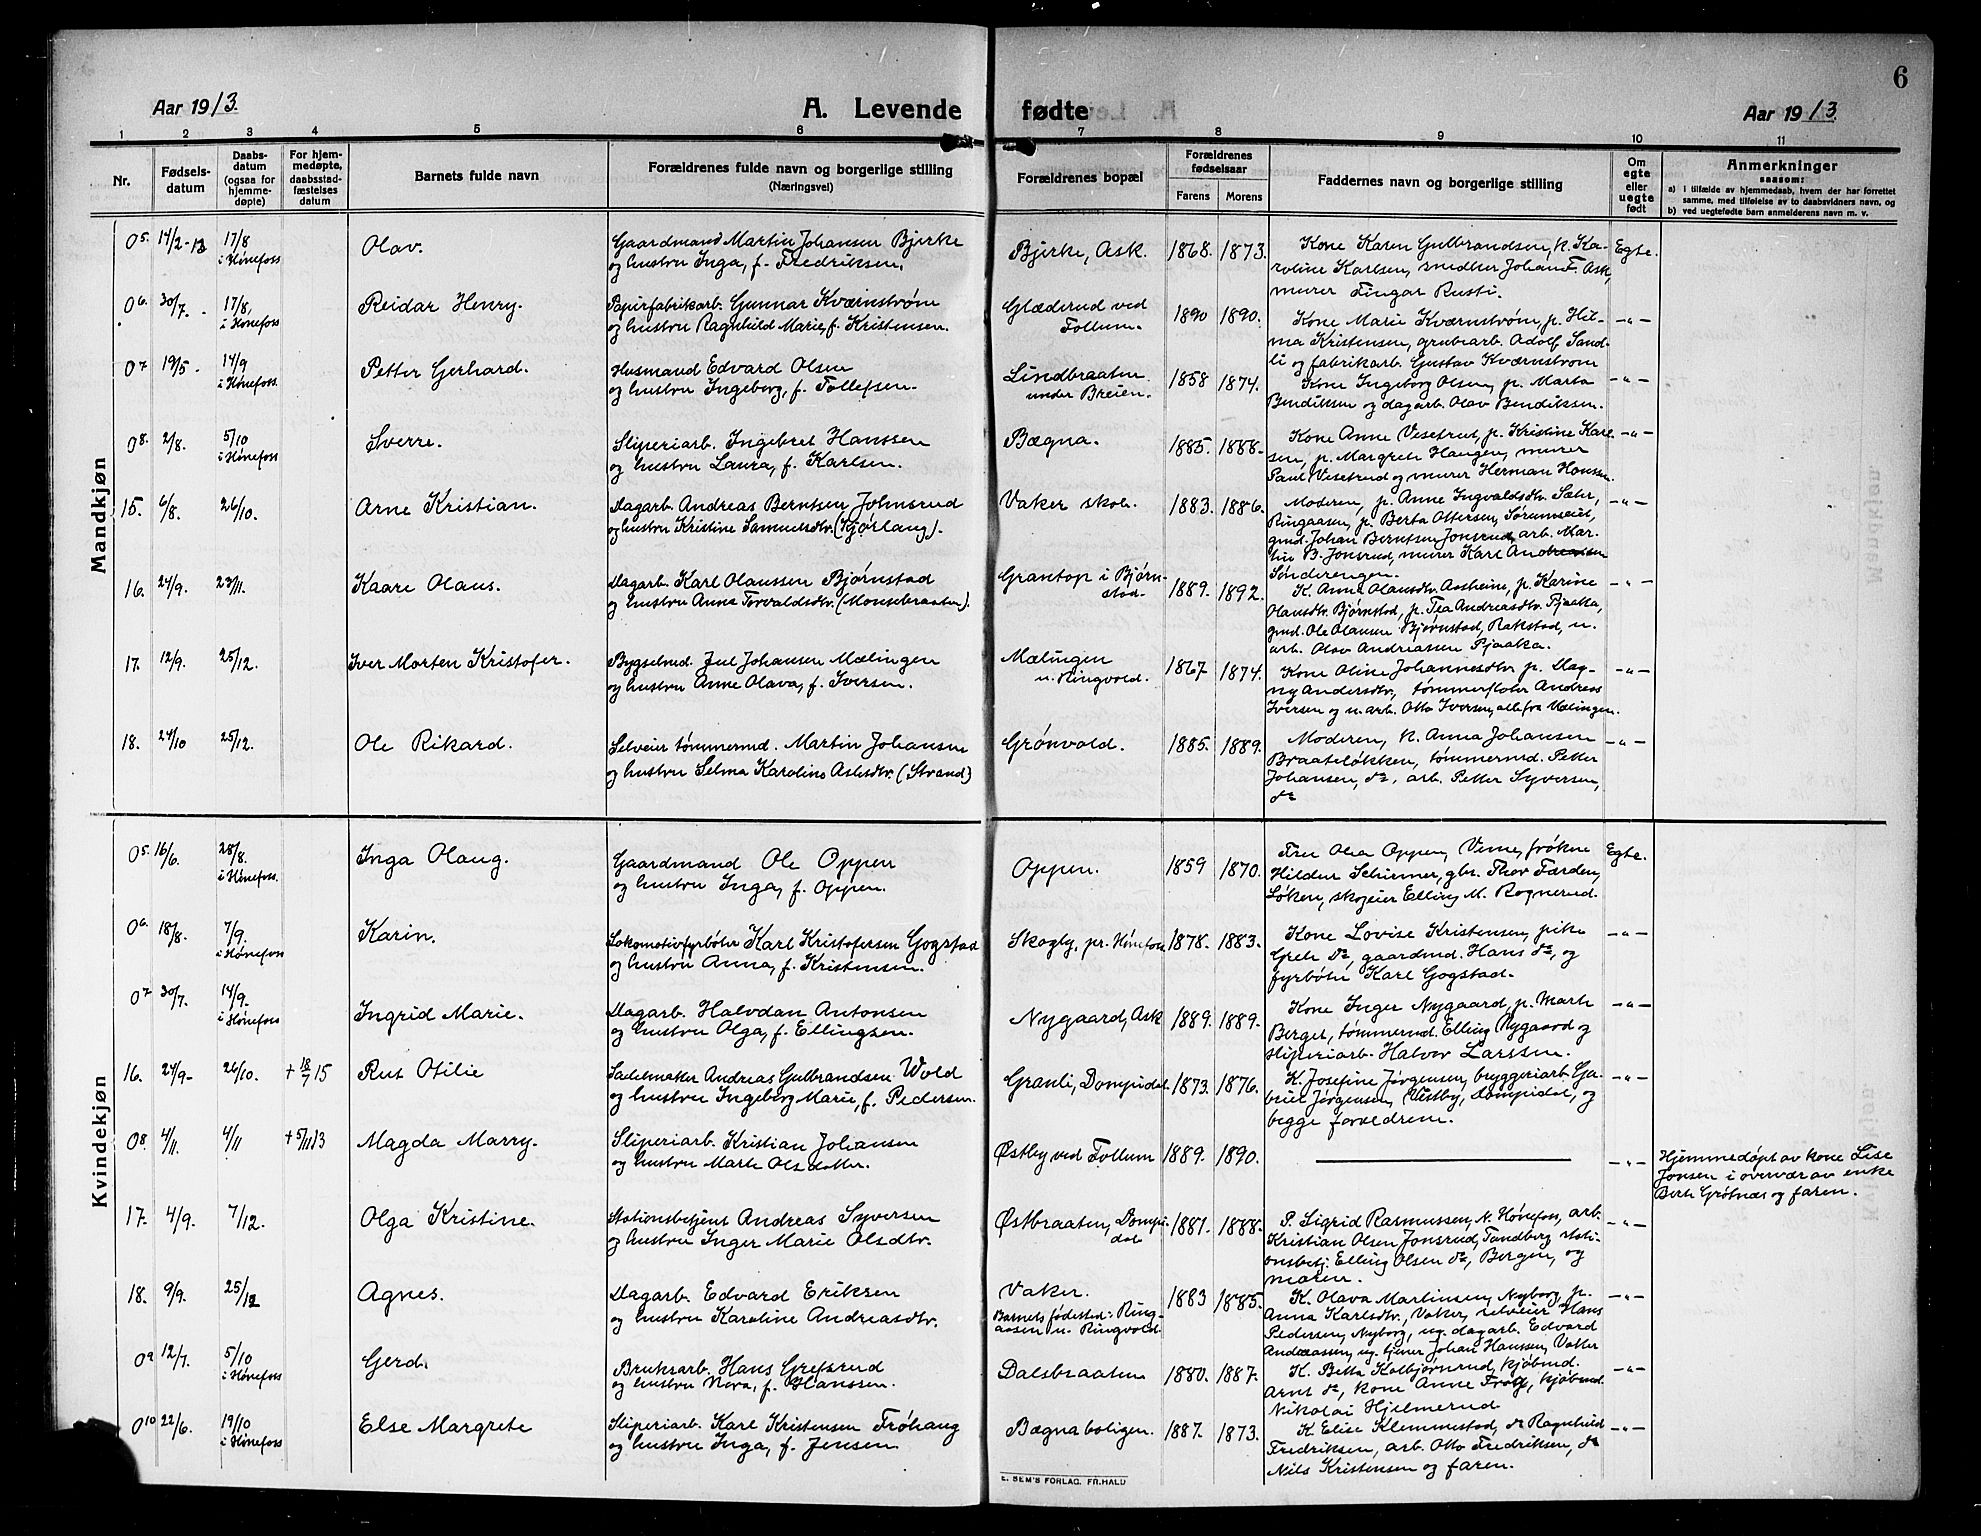 6
Aar 1913.
A. Levende fødte
Aar 1913.
1 2 3 4 5 6 7 8 9 10 11
Nr.
Fødsels-
datum
Daabs-
datum
(ogsaa for
hjemme-
døpte)
For hjem-
medøpte,
daabsstad-
fæstelses
datum
Barnets fulde navn
Forældrenes fulde navn og borgerlige stilling
(Næringsvei)
Forældrenes bopæl
Forældrenes
fødselsaar
Farens Morens
Faddernes navn og borgerlig stilling
Om
egte
eller
uegte
født
Anmerkninger
saasom:
a) i tilfælde av hjemmedaab, hvem der har forrettet
samme, med tilføielse av to daabsvidners navn, og
b) ved uegtefødte barn anmelderens navn m. v.
Mandkjøn
05. 14/2-13 17/8
i Hønefoss
Olav.
Gaardmand Martin Johansen Bjerke
og hustru Inga, f. Fredriksen.
Bjerke, Ask. 1868. 1873.
Kone Karen Gulbrandsen, k. Ka-
roline Karlsen, snedker Johan F. Ask,
murer Fingar Rusti.
Egte.
06. 30/7. 17/8,
i Hønefoss
Reidar Henry.
Papirfabrikarb. Gunnar Kværnstrøm
og hustru Ragnhild Marie, f. Kristensen.
Glæderud ved
Follum.
1890 1890.
Kone Marie Kværnstrøm, p. Hil-
ma Kristensen, grubearb. Adolf Sand-
li og fabrikarb. Gustav Kværnstrøm
-"-
07 19/5. 14/9
i Hønefoss.
Petter Gerhard.
Husmand Edvard Olsen
og hustru Ingeborg, f. Tollefsen.
Lindbraaten
under Breien.
1858 1874.
Kone Ingeborg Olsen, p. Marta
Bendiksen og dagarb. Olav Bendiksen.
-"-
08. 2/8. 5/10
i Hønefoss
Sverre.
Sliperiarb. Ingebret Hanssen
og hustru Laura, f. Karlsen.
Bægna. 1885. 1888.
Kone Anne Vesetrud, p. Kristine Karl-
sen, p. Margrete Haugen, murer
Paul Vesetrud og murer Herman Hanssen.
-"-
15. 6/8. 26/10.
Arne Kristian.
Dagarb. Andreas Berntsen Johnsrud
og hustru Kristine Samuelsdtr. (Kjørlaug).
Vaker skole. 1883. 1886.
Moderen, p. Anne Ingvaldsdtr. Sæter,
Ringaasen, p. Berta Ottersen, Sørumseiet,
gmd. Johan Berntsen Jonsrud, arb. Mar-
tin B. Jonsrud, murer Karl Andreassen
Sønderengen.
-"-
16. 24/9. 23/11.
Kaare Olaus.
Dagarb. Karl Olaussen Bjørnstad
og hustru Anna Torvaldsdtr. (Monsebraaten).
Grantop i Bjørn-
stad.
1889. 1892.
K. Anna Olausdtr. Aasheim, p. Karine
Olausdtr. Bjørnstad, p. Tea Andreasdtr. Pjaaka,
gmd. Ole Olausen Bjørnstad, Rakstad, u.
arb. Olav Andreassen Pjaaka.
-"-
17. 12/9. 25/12.
Iver Morten Kristofer.
Bygselmd. Jul Johansen Mælingen
og hustru Anne Olava, f. Iversen.
Mælingen
u. Ringvold.
1867 1874.
Kone Oline Johannesdtr. p. Dag-
ny Andersdtr, tømmerfløter Andreas
Iversen og u. arb. Otto Iversen, alle fra Mælingen.
-"-
18. 24/10 25/12.
Ole Rikard.
Selveier tømmermd. Martin Johansen
og hustru Selma Karoline Aslesdtr. (Strand)
Grønvold. 1885. 1889.
Moderen, k. Anna Johansen
Braateløkken, tømmermd. Petter
Johansen, do, arb. Petter Syversen,
do
-"-
Kvindekjøn
05. 16/6. 28/8.
i Hønefoss.
Inga Olaug.
Gaardmand Ole Oppen
og hustru Inga, f. Oppen.
Oppen. 1859 1870.
Fru Olea Oppen, Veme, frøkne
Hildur Schinner, gbr. Thor Færden,
Løken, skogeier Elling M. Rognerud.
Egte.
06. 18/8. 7/9.
i Hønefoss
Karin.
Lokomotivfyrbøter Karl Kristofersen Gogstad
og hustru Anna, f. Kristensen.
Skogly, pr. Hønefoss 1878. 1883.
Kone Lovise Kristensen, pike
Grete do, gaardmd. Hans do, og
fyrbøter Karl Gogstad.
-"-
07 30/7. 14/9.
i Hønefoss
Ingrid Marie.
Dagarb. Halvdan Antonsen
og hustru Olga, f. Ellingsen.
Nygaard, Ask 1889. 1889.
Kone Inger Nygaard, p. Marte
Berger, tømmermd. Elling Nygaard og
sliperiarb. Halvor Larssen.
-"-
16. 24/9- 26/10. + 18/7 15
Rut Otilie
Sadelmaker Andreas Gulbrandsen Wold
og hustru Ingeborg Marie, f. Pedersen.
Granli, Dompidal. 1873. 1876.
K. Josefine Jørgensen, bryggeriarb. Ga-
briel Jørgensen, Vestby, Dompidal, og
begge forældrene.
-"-
08. 4/11. 4/11 + 5/11 13
Magda Marry.
Sliperiarb. Kristian Johansen
og hustru Marte Olsdatter.
Østby ved Follum 1889. 1890.
-"-
Hjemmedøpt av kone Lise
Jonsen i overvær av enke
Berte Grøtnæs og faren.
17. 4/9. 7/12.
Olga Kristine.
Stationsbetjent Andreas Syversen
og hustru Inger Marie Olsdtr.
Østbraaten, Dompi-
dal
1881. 1888.
P. Sigrid Rasmussen, N. Hønefoss, arb.
Kristian Olsen Jonsrud, Tandberg, stati-
onsbetj. Elling Olsen do, Bergen, og
moren.
-"-
18. 9/9. 25/12
Agnes.
Dagarb. Edvard Eriksen
og hustru Karoline Andreasdtr.
Vaker.
Barnets fødested: Ring-
aasen u. Ringvold.
1883 1885.
K. Olava Martinsen, Nyborg, p.
Anna Karlsdtr., Vaker, selveier Hans
Pedersen, Nyborg, ug. dagarb. Edvard
Andreassen, ug. tjener Johan Hanssen, Vaker
-"-
09 12/7. 5/10
i Hønefoss
Gerd.
Bruksarb. Hans Grefsrud
og hustru Nora, f. Hanssen.
Dalsbraaten 1880. 1887.
K. Betta Kolbjørnsrud, kjøbmd.
Arnt do, kone Anne Frøig, kjøbmd.
Nikolai Hjelmerud
-"-
010 22/6. 19/10
i Hønefoss
Else Margrete
Sliperiarb. Karl Kristensen Frøhaug
og hustru Inga, f. Jensen
Bægnaboligen. 1887. 1873.
K. Elise Klemmestad, do Ragnhild
Fredriksen, arb. Otto Fredriksen, do
Nils Kristensen og faren.
-"-
E. SEM'S FORLAG, FR.HALD